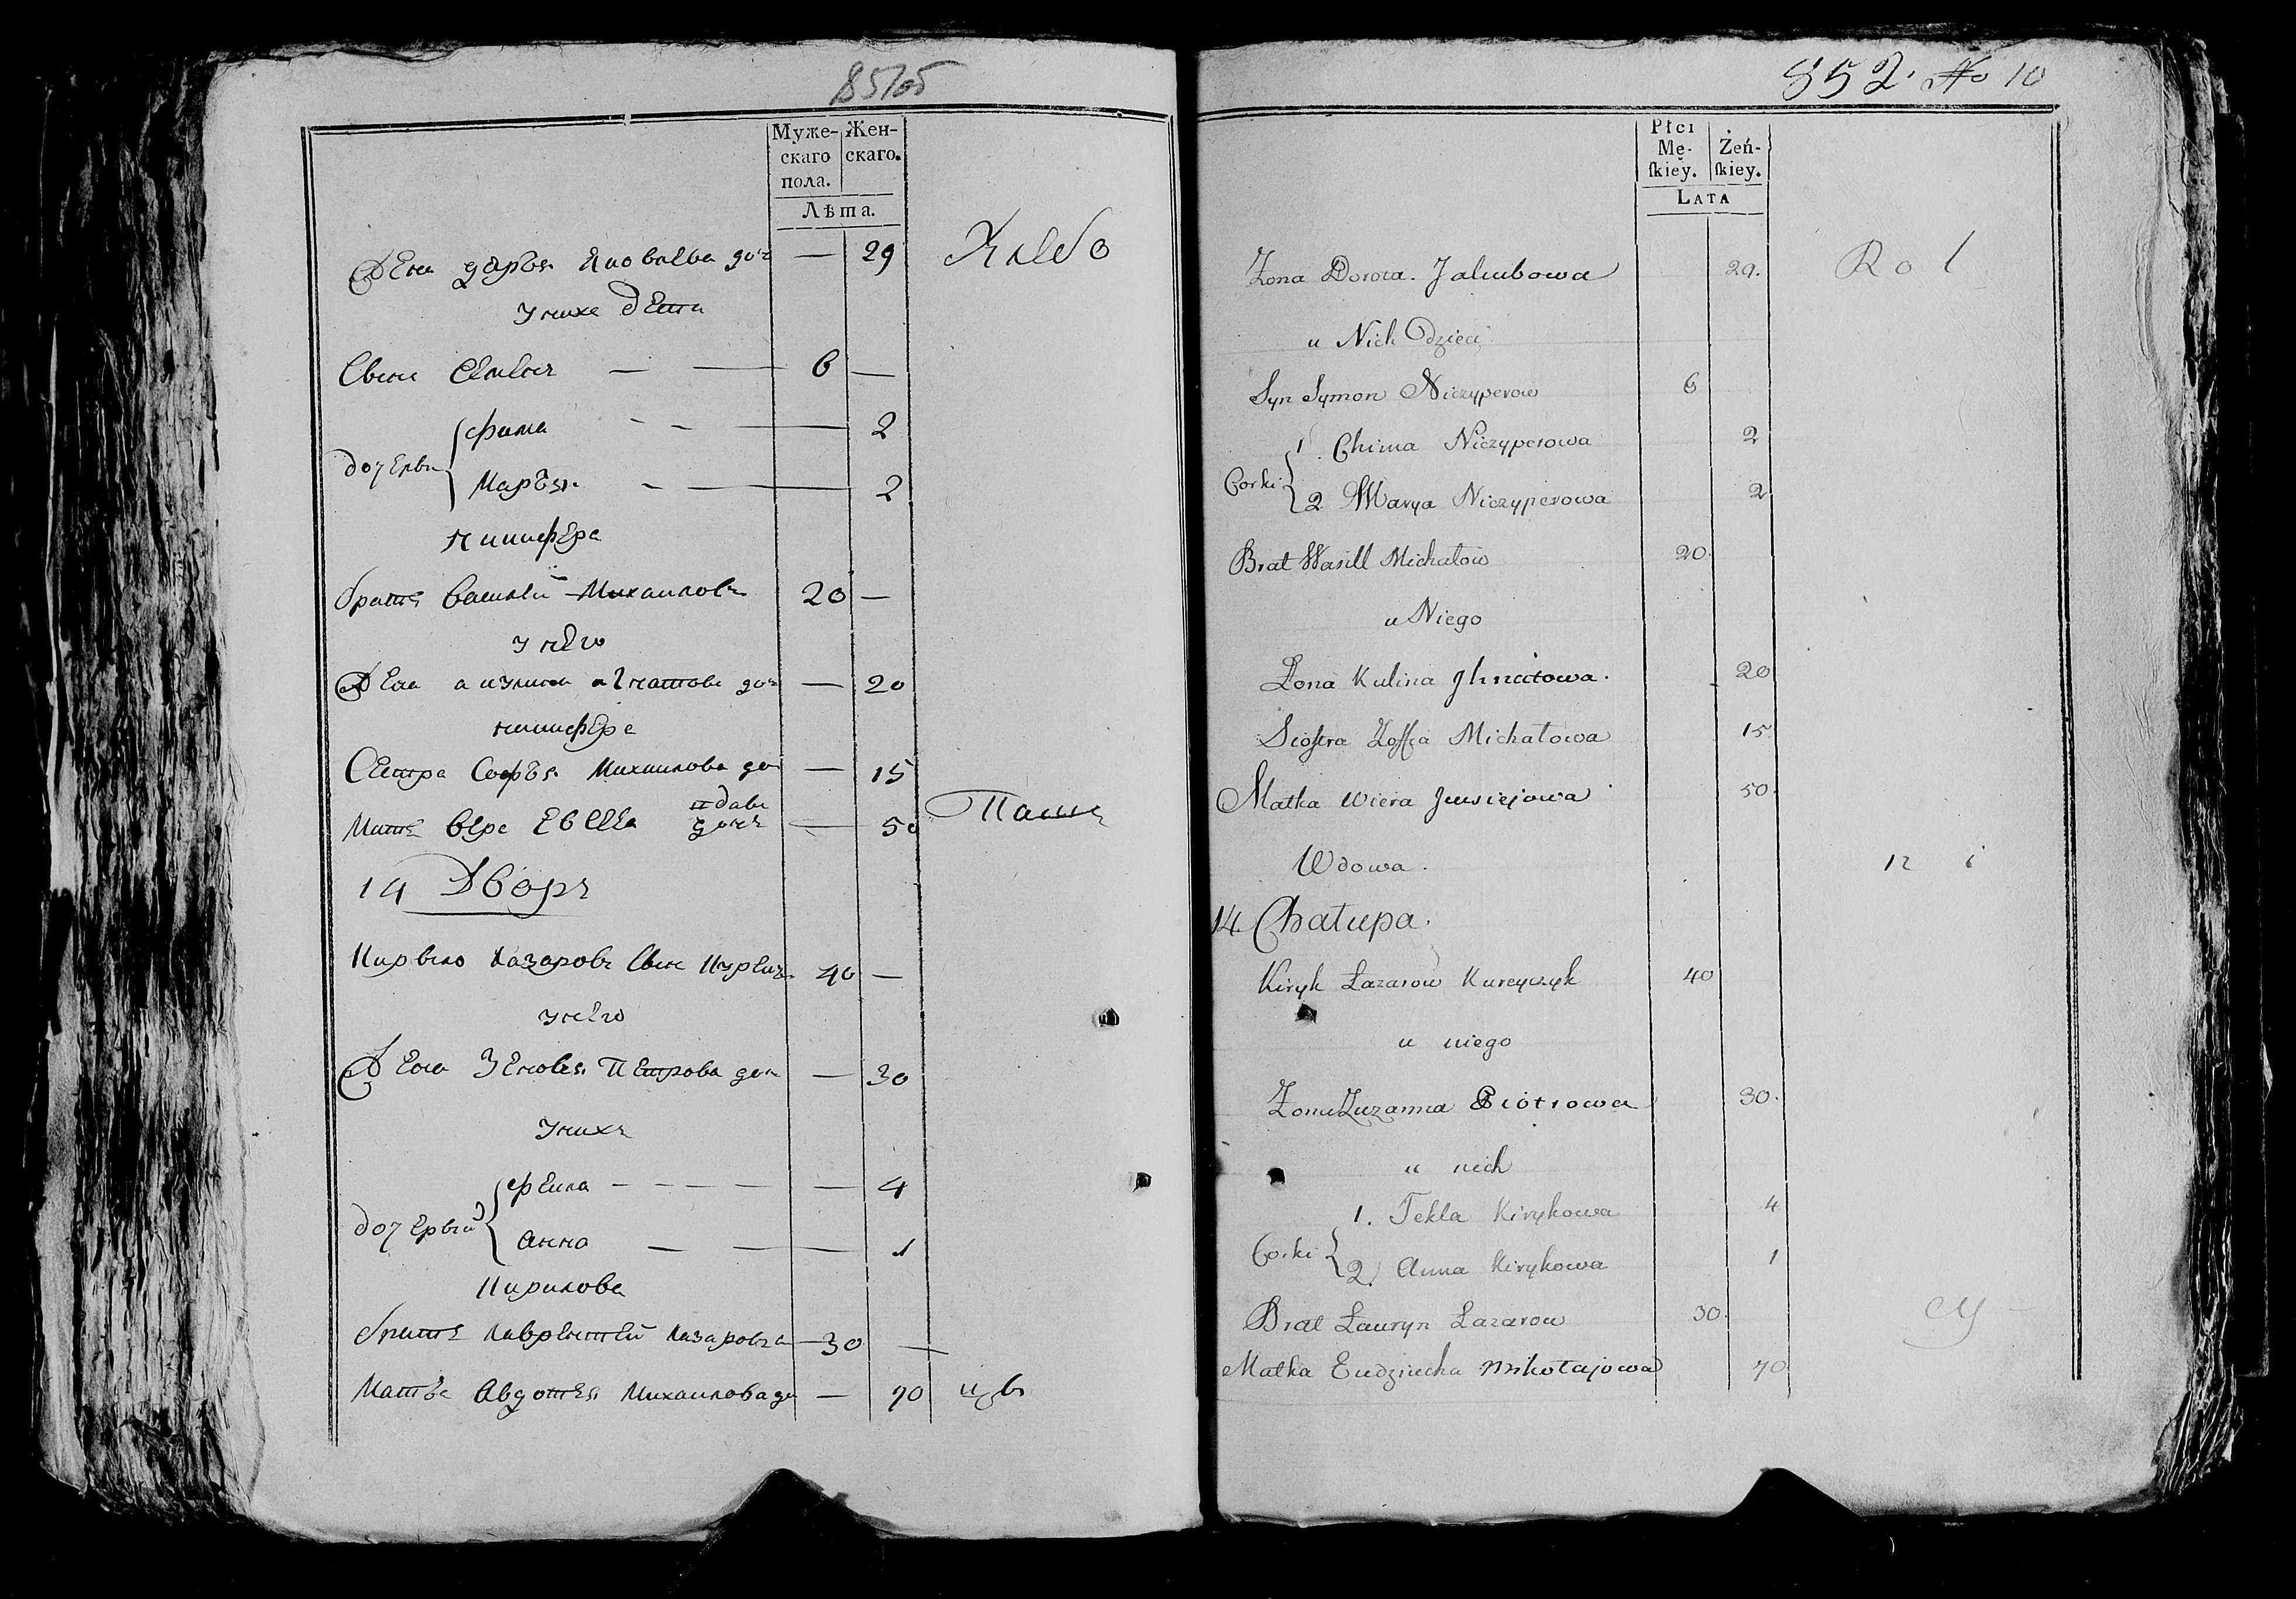 851об
Муже- Жен-
скаго скаго.
пола.
Лѣта.
Жена дарья Яковлева доч — 29 Хлебо
у нихъ дети
Сынъ Семенъ — — 6 —
фима - - — 2
дочерьи
Марья - — 2
Ничифера
братъ василей Михаиловъ 20 —
у него
Жена акулина игнатова доч — 20
ничифера
Сестра Софья Михаилова до — 15
вдова
Мать вера Евсеева дочь — 50 Паш
14 Дворъ
Кирыло Лазаровъ Сынъ 40 —
у него
Жена Зеновья Петрова доч — 30
у нихъ
фекла - - - - — 4
дочерьи
анна — — 1
Кирилова
братъ Лаврентей Лазаровъ — 30 —
Матъ Авдотья Михаилова до — 70 цы
852. No 10
Płci
Mę- Żeń-
ſkiey. ſkiey.
LATA
Zona Dorota. Jakubowa 29. Rol
u Nich Dzieci
Syn Symon Niczyperow 6
1. Chima Niczyperowa 2
Corki
2 Marya Niczyperowa 2
Brat Wasill Michałow 20.
u Niego
Zona Kulina Jhnatowa. 20
Siostra Zofia Michałowa 15
Matka Wiera Juwsiejowa 50.
Wdowa. n i
14. Chałupa.
Kiryk Łazarow Kureyczyk 40
u niego
Zona Zuzanna Piotrowa 30.
u nich
1. Tekla Kirykowa 4
Corki
2. Anna Kirykowa 1
Brat Łauryn Łazarow 30. cy
Matka Eudziucha Mikołajowa 70